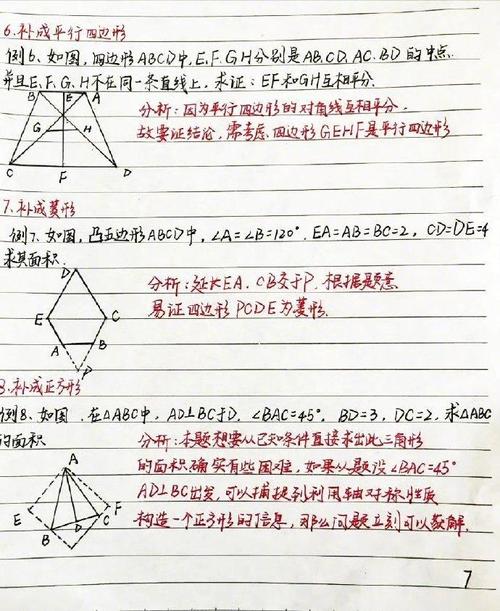 6.补成平行四边形
例6、如图,四边形ABCD中,E.F.G.H分别是AB.CD.AC.BD的中点
并且E.F.G.H不在同一条直线上,求证:EF和GH互相平分.
B E A
G H
C F D
分析:因为平行四边形的对角线互相平分.
故要证结论,需考虑四边形GEHF是平行四边形
7.补成菱形
例7、如图,凸五边形ABCD中,∠A=∠B=120°,EA=AB=BC=2,CD=DE=4
求其面积.
D
E C
A B
P
分析:延长EA.CB交于P,根据题意
易证四边形PCDE为菱形.
8.补成正方形
例8、如图.在△ABC中,AD⊥BC于D,∠BAC=45°,BD=3,DC=2,求△ABC
的面积
A
E F
B D C
分析:本题想要从已知条件直接求出此三角形
的面积确实有些困难,如果从题设∠BAC=45°
AD⊥BC出发,可以捕捉到利用轴对称性质
构造一个正方形的信息,那么问题立刻可以获解.
7